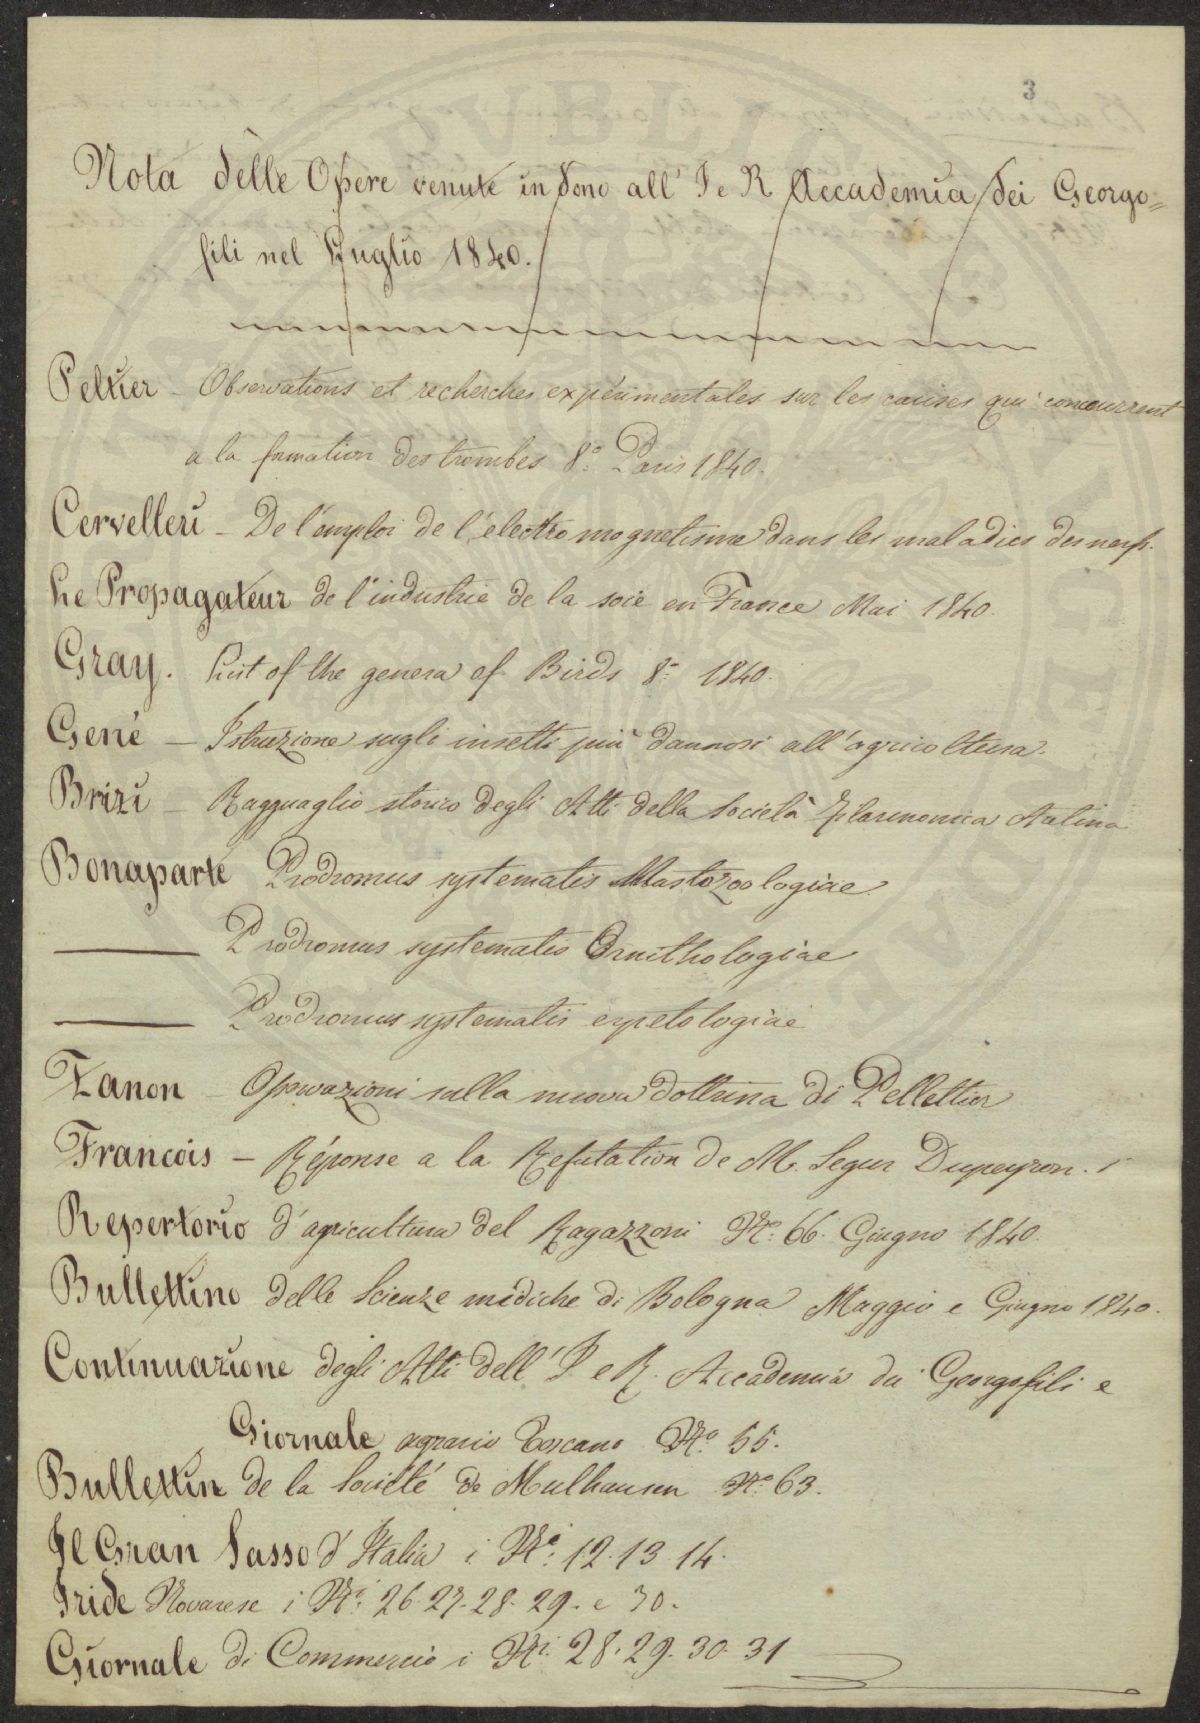 3
Nota delle Opere venute in dono all' I e R Accademia dei Georgo=
fili nel Luglio 1840.
Peltier - Observations et recherches expérimentales sur les causes qui concourrent
a la formation des trombes 8.º Paris 1840.
Cervelleri - De l'emploi de l'électro magnetisme dans les maladies des nerfs.
Le Propagateur de l'industrie de la soie en France Mai 1840.
Gray. List of the genera of Birds 8.º 1840.
Gené - Istruzione sugli insetti più dannosi all'agricoltura.
Brizi - Ragguaglio storico degli Atti della Società Filarmonica Aretina
Bonaparte Prodromus systematis Mastozoologiae.
Prodromus systematis Ornithologiae
Prodromus systematis erpetologiae
Zanon - Osservazioni sulla nuova dottrina di Pellettier
Francois - Réponse a la Refutation de M. Segur Dupeyron.
Repertorio d'agricultura del Ragazzoni N.º 66. Giugno 1840.
Bullettino delle Scienze mediche di Bologna Maggio e Giugno 1840.
Continuazione degli Atti dell' I e R. Accademia dei Georgofili e
Giornale agrario Toscano N.º 55.
Bullettin de la Société de Mulhausen N.º 63.
Il Gran Sasso d'Italia i N.i 12. 13. 14.
Iride Novarese i N.i 26. 27. 28. 29. e 30.
Giornale di Commercio i N.i 28. 29. 30. 31